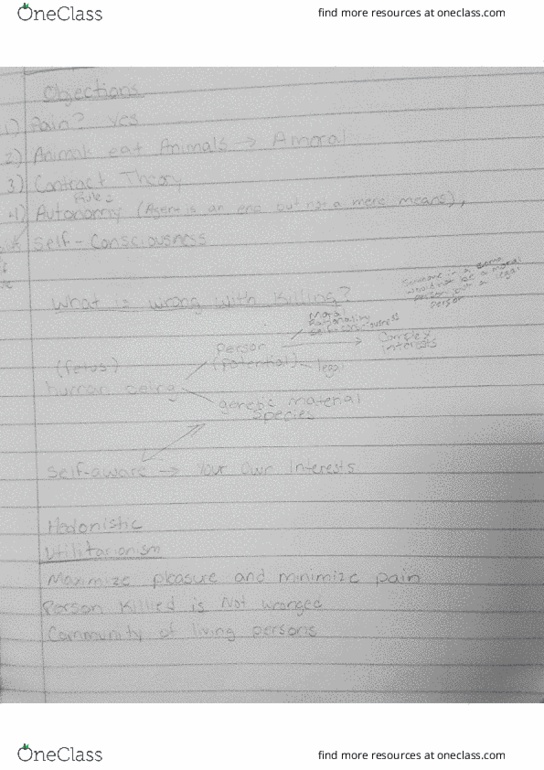 OneClass
find more resources at oneclass.com
Objections
1) Pain? Yes
2) Animals eat Animals → Amoral
3) Contract Theory
Rule 2
4) Autonomy (Agent is an end but not a mere means),
Self-Consciousness
What is wrong with Killing?
Someone in a coma
would not be a moral
person but a legal
person
Moral
Rationality
Self consciousness
Person → Complex Interests
(fetus) (potential) - legal
human being
genetic material
species
Self-aware → Your Own Interests
Hedonistic
Utilitarianism
Maximize pleasure and minimize pain
Person Killed is Not wronged
Community of living persons
OneClass
find more resources at oneclass.com